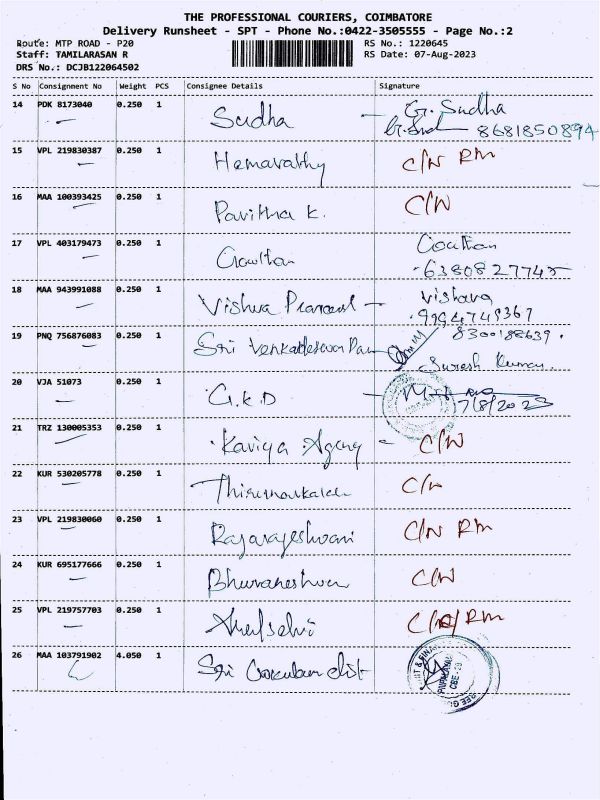 THE PROFESSIONAL COURIERS, COIMBATORE
Delivery Runsheet - SPT - Phone No.:0422-3505555 - Page No.:2
Route: MTP ROAD - P20
RS No.: 1220645
Staff: TAMILARASAN R
RS Date: 07-Aug-2023
DRS No.: DCJB122064502
S No Consignment No Weight PCS Consignee Details Signature
14 PDK 8173040 0.250 1 Sudha G. Sudha
8681850894
15 VPL 219830387 0.250 1 Hemavathy C/N RM
16 MAA 100393425 0.250 1 Pavithra K. C/N
17 VPL 403179473 0.250 1 Gowthan Gouthan
6380827745
18 MAA 943991088 0.250 1 Vishwa
9994749367
19 PNQ 756876083 0.250 1 Sri 8300188639.
Suresh Kumar
20 VJA 51073 0.250 1 G.K.D
7/8/2023
21 TRZ 130005353 0.250 1 Kaviya Agency C/N
22 KUR 530205778 0.250 1 C/N
23 VPL 219830060 0.250 1 Rajarajeshwari C/N RM
24 KUR 695177666 0.250 1 Bhuvaneshwari C/N
25 VPL 219757703 0.250 1 Arulselvi RM
26 MAA 103791902 4.050 1 Sri